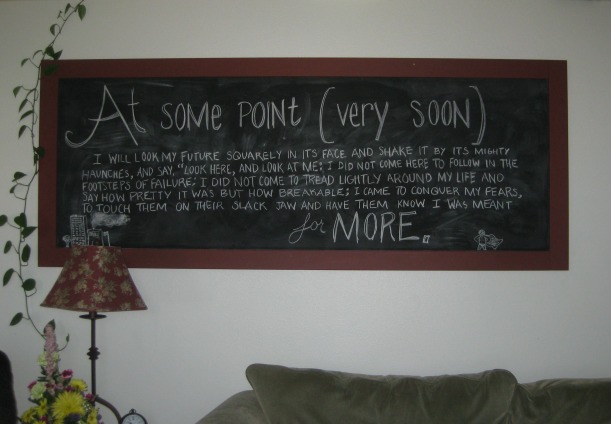 At SOME POINT (very SOON)
I WILL LOOK MY FUTURE SQUARELY IN ITS FACE AND SHAKE IT BY ITS MIGHTY
HAUNCHES, AND SAY, "LOOK HERE, AND LOOK AT ME: I DID NOT COME HERE TO FOLLOW IN THE
FOOTSTEPS OF FAILURE; I DID NOT COME TO TREAD LIGHTLY AROUND MY LIFE AND
SAY HOW PRETTY IT WAS BUT HOW BREAKABLE; I CAME TO CONQUER MY FEARS,
TO TOUCH THEM ON THEIR SLACK JAW AND HAVE THEM KNOW I WAS MEANT
for MORE.